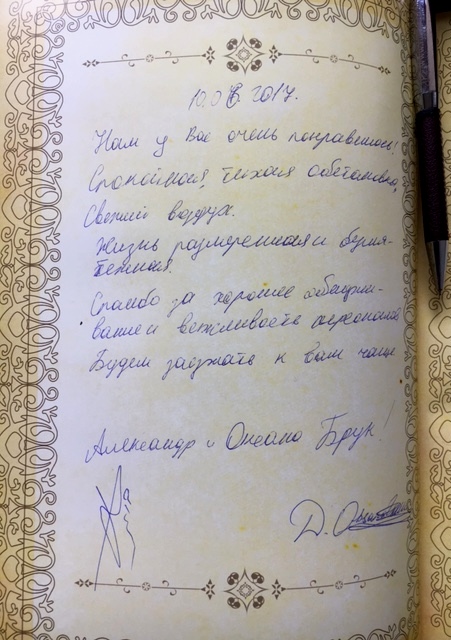 10.06.2017.
Нам у Вас очень понравилось!
Спокойная, тихая обстановка,
Свежий воздух.
Жизнь размеренная и безмя-
тежная.
Спасибо за хорошее обслужи-
вание и вежливость персонала
Будем заезжать к вам чаще
Александр и Оксана Брук!
Д.